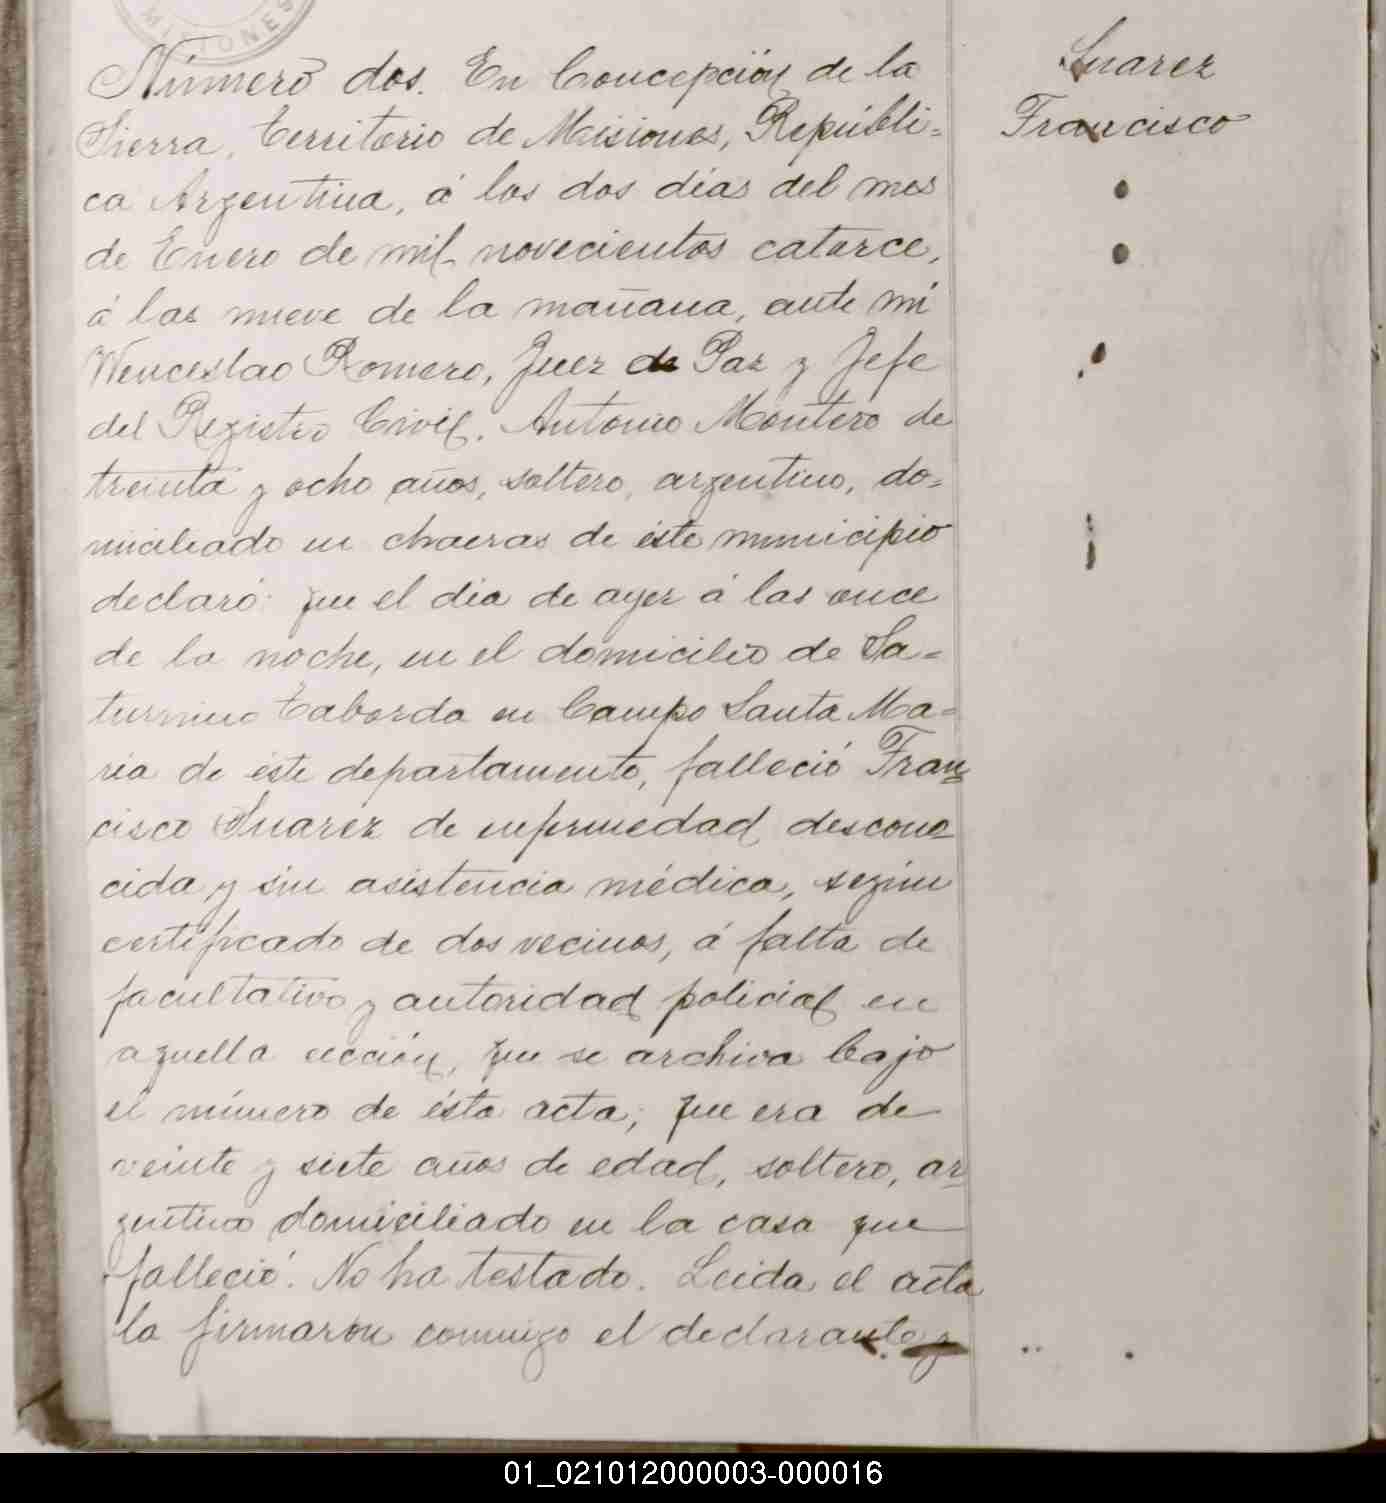 MISIONES
Número dos. En Concepción de la
Sierra, Territorio de Misiones, Repúbli=
ca Argentina, á los dos dias del mes
de Enero de mil novecientos catorce,
á las nueve de la mañana, ante mi
Wenceslao Romero, Juez de Paz y Jefe
del Registro Civil, Antonio Montero de
treinta y ocho años, soltero, argentino, do=
miciliado en chacras de éste municipio
declaró: que el dia de ayer á las once
de la noche, en el domicilio de Sa=
turnino Taborda en Campo Santa Ma=
ria de éste departamento, falleció Fran=
cisco Suarez de enfermedad descono=
cida y sin asistencia médica, según
certificado de dos vecinos, á falta de
facultativo y autoridad policial en
aquella sección, que se archiva bajo
el número de ésta acta; que era de
veinte y siete años de edad, soltero, ar=
gentino domiciliado en la casa que
falleció. No ha testado. Leida el acta
la firmaron conmigo el declarante y
Suarez
Francisco
01_021012000003-000016